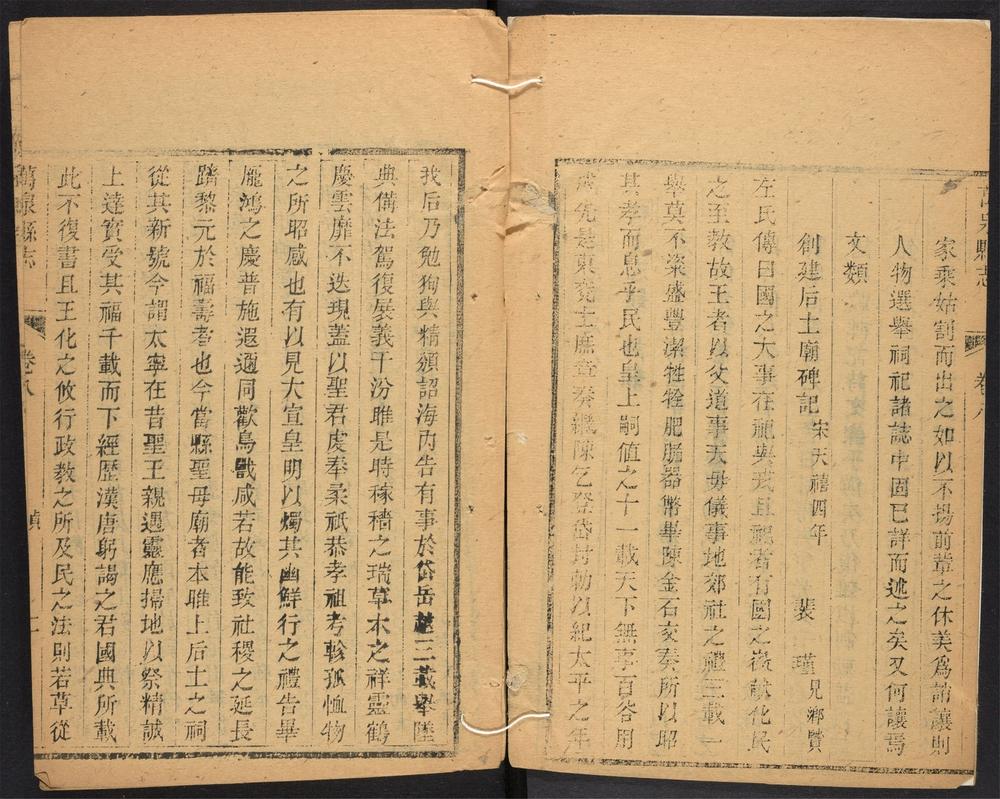 縣志
卷八
家乘姑割而出之如以不揚前輩之休美為誚讓則
人物選舉祠祀諸誌中固已詳而述之矣又何讓焉
文類
創建后土廟碑記 宋天禧四年 裴瑾見鄉賢
左氏傳曰國之大事在祀與戎且祀者有國之 猷化民
之至教故王者以父道事天母儀事地郊社之禮三載一
舉莫不粢盛豐潔牲牷肥腯器幣畢陳金石交奏所以昭
其孝而息乎民也皇上嗣值之十一載天下無事百谷用
成先是東兗士庶 奉 陳乞登岱封勒以紀太平之年
我后乃勉狥輿精頒詔海內告有事於岱岳越三載舉墜
典備法駕復展義于汾脽是時稼穡之瑞草木之祥靈鶴
慶雲靡不迭現蓋以聖君處奉柔祇恭孝祖考軫孤恤物
之所昭感也有以見大宣皇明以燭其幽鮮行之禮告畢
龐鴻之慶普施遐邇同歡鳥獸咸若故能致社稷之延長
躋黎元於福壽者也今當縣聖母廟者本脽上后土之祠
從其新號今謂太寧在昔聖王親遇靈應掃地以祭精誠
上達實受其福千載而下經歷漢唐躬謁之君國典所載
此不復書且王化之攸行政教之所及民之法則若草從
萬泉縣志
卷八
二